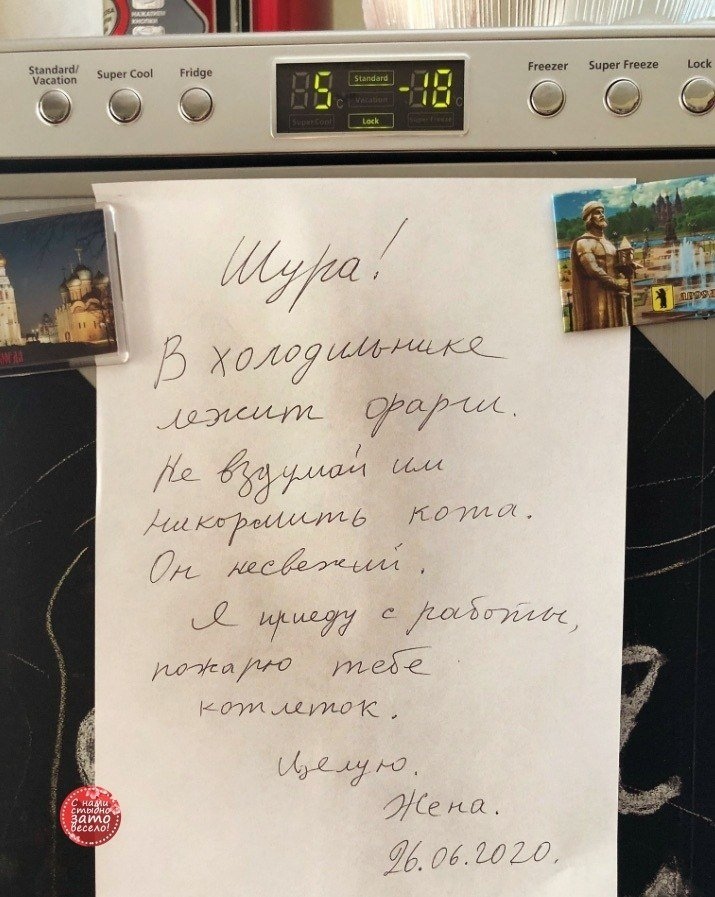 НАЖАТИЕМ
КНОПКИ
Standard/
Vacation
Super Cool
Fridge
5 C
Standard
Vacation
-18 C
Super Cool
Lock
Super Freeze
Freezer
Super Freeze
Lock
Шура!
В холодильнике
лежит фарш.
Не вздумай им
накормить кота.
Он несвежий.
Я приеду с работы,
пожарю тебе
котлеток.
Целую.
Жена.
26.06.2020.
С нами
стыдно
зато
весело!